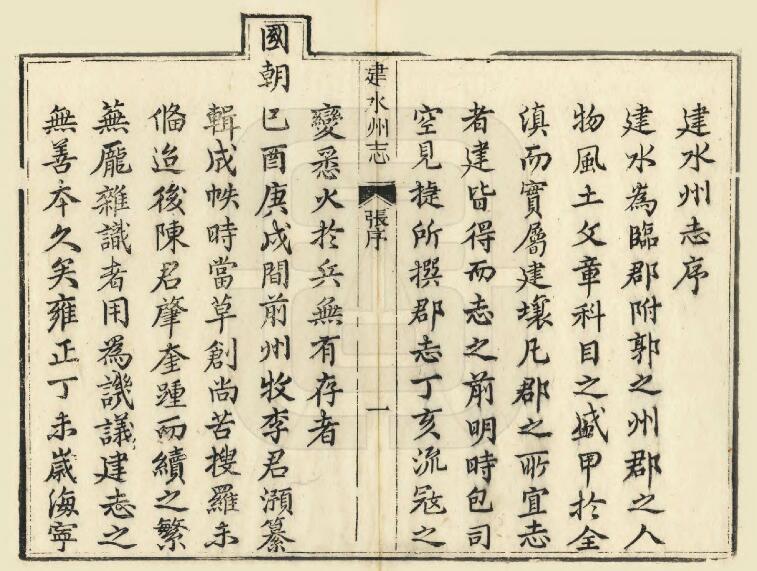 建水州志序
建水為臨郡附郭之州郡之人
物風土文章科目之盛甲於全
滇而實屬建壤凡郡之所宜志
者建皆得而志之前明時包司
空見捷所撰郡志丁亥流寇之
建水州志
張序
一
變悉火於兵無有存者
國朝己酉庚戌間前州牧李君灝纂
輯成帙時當草創尚苦搜羅未
備迨後陳君肇奎踵而續之繁
蕪龎雜識者用為譏議建志之
無善本久矣雍正丁未歲海寧